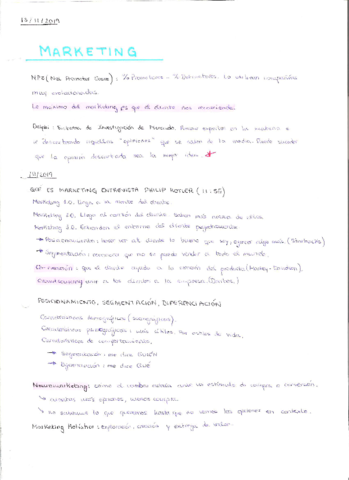 13/11/2019
MARKETING
NPS (Net Promoter Score): % Promotores - % Detractores. Lo utilizan compañías
muy
Lo máximo del marketing es que el cliente nos recomiende.
Delphi: Sistema de Investigación de Mercado. Reune expertos en la materia e
que se salen de la media. Puede suceder
que la opinión discordante sea la mejor idea *
QUÉ ES MARKETING ENTREVISTA PHILIP KOTLER (11.56)
Marketing 1.0. Llega a la mente del cliente.
Marketing 2.0. Llega al corazón del cliente. Saben más cosas de ellos
Marketing 3.0. Entienden el entorno del cliente
→ Posicionamiento: hacer ver al cliente lo bueno que soy, (Starbucks)
→ Segmentación: reconocer que no se puede vender a todo el mundo.
Co-creación: que el cliente ayude a la creación del producto (Harley-Davidson).
Crowdsourcing: unir a los clientes a la empresa (Doritos)
POSICIONAMIENTO, SEGMENTACIÓN, DIFERENCIACIÓN
Características demográficas
Características psicográficas: estilos de vida,
Características de comportamiento,
→ Segmentación: me dice QUIÉN
→ Diferenciación: me dice QUÉ
Neuromarketing: cómo el cerebro
↳ cuantas más opciones, menos compra.
↳ no sabemos lo que queremos hasta que no vemos las opciones en contexto.
Marketing Holístico: exploración, creación y entrega de valor.